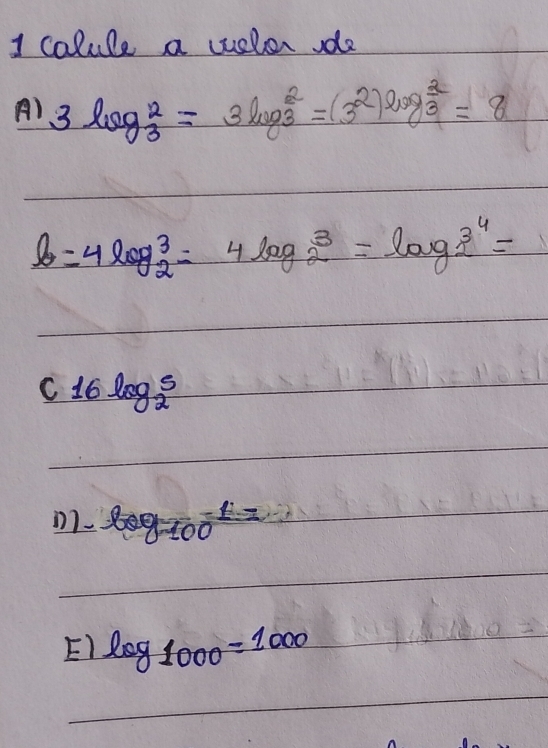 1 Calule a velor de
A) 3 log₃² = 3 log₃² = (3²) log₃² = 8
b = 4 log₂³ = 4 log₂³ = log₂³⁴ =
C 16 log₂⁵
D) - log₁₀₀ 1 =
E) log 1000 = 1000